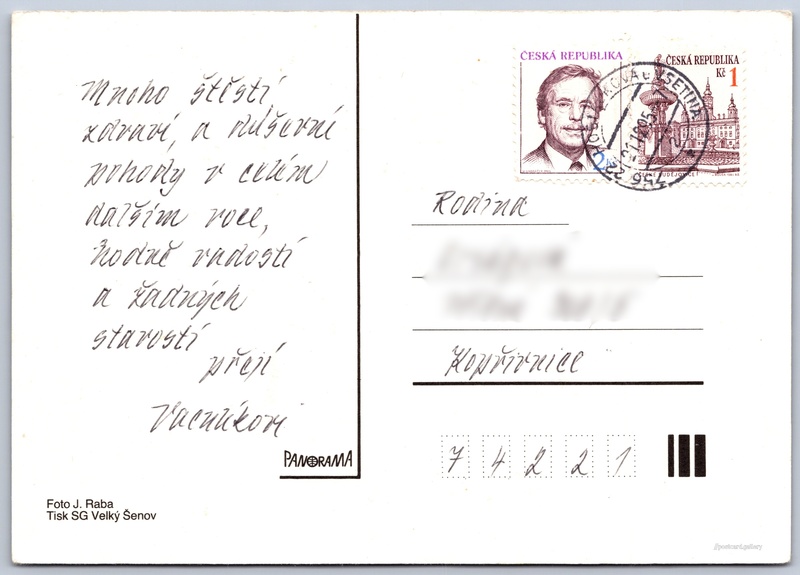 Mnoho štěstí
zdraví, a duševní
pohody v celém
dalším roce,
hodně radostí
a žádných
starostí
přejí
Vaculíkovi
PANORAMA
Foto J. Raba
Tisk SG Velký Šenov
ČESKÁ REPUBLIKA
ČESKÁ REPUBLIKA
Kč 1
U VSETÍNA
756 22
Rodina
Kopřivnice
74221
//postcard.gallery